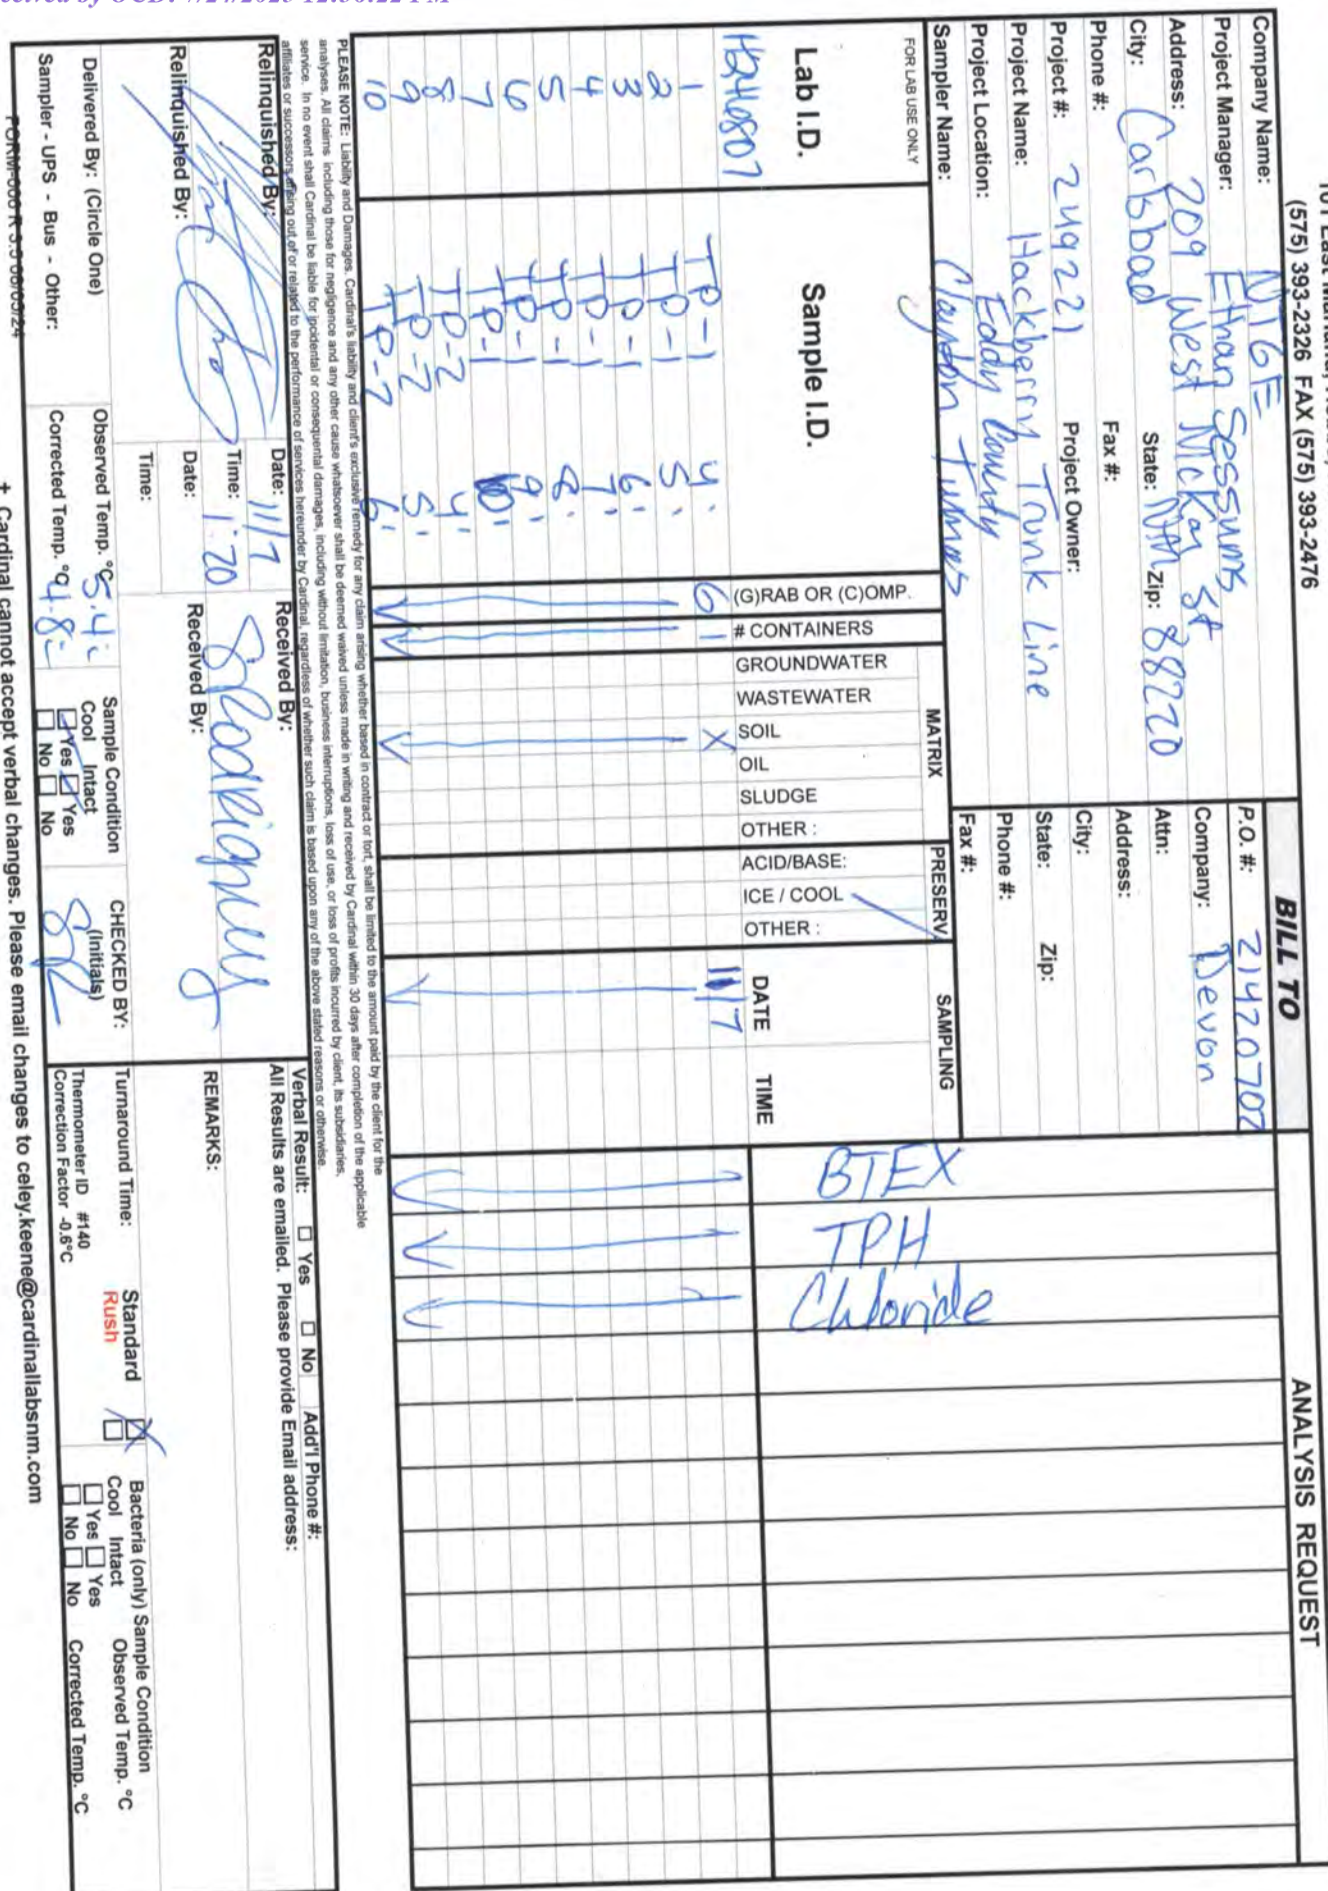 101 East Marland,
(575) 393-2326 FAX (575) 393-2476
Company Name: NTGE
Project Manager: Ethan Sessums
Address: 209 West McKay St
City: Carlsbad State: NM Zip: 88220
Phone #: Fax #:
Project #: 249221 Project Owner:
Project Name: Hackberry Trunk Line
Project Location: Eddy County
Sampler Name: Clayton
BILL TO
P.O. #: 21420702
Company: Devon
Attn:
Address:
City:
State: Zip:
Phone #:
Fax #:
ANALYSIS REQUEST
FOR LAB USE ONLY
Lab I.D. Sample I.D.
(G)RAB OR (C)OMP.
# CONTAINERS
MATRIX
GROUNDWATER
WASTEWATER
SOIL
OIL
SLUDGE
OTHER :
PRESERV.
ACID/BASE:
ICE / COOL
OTHER :
SAMPLING
DATE TIME
BTEX
TPH
Chloride
H246807
1 TP-1 4' G 1 X 11/7
2 TP-1 5'
3 TP-1 6'
4 TP-1 7'
5 TP-1 8'
6 TP-1 9'
7 TP-1 10'
8 TP-2 4'
9 TP-2 5'
10 TP-2 6'
PLEASE NOTE: Liability and Damages. Cardinal's liability and client's exclusive remedy for any claim arising whether based in contract or tort, shall be limited to the amount paid by the client for the
analyses. All claims including those for negligence and any other cause whatsoever shall be deemed waived unless made in writing and received by Cardinal within 30 days after completion of the applicable
service. In no event shall Cardinal be liable for incidental or consequental damages, including without limitation, business interruptions, loss of use, or loss of profits incurred by client, its subsidiaries,
affiliates or successors arising out of or related to the performance of services hereunder by Cardinal, regardless of whether such claim is based upon any of the above stated reasons or otherwise.
Relinquished By:
Date: 11/7
Time: 1:20
Received By:
SRodriguez
Relinquished By:
Date:
Time:
Received By:
Verbal Result: □ Yes □ No Add'l Phone #:
All Results are emailed. Please provide Email address:
REMARKS:
Delivered By: (Circle One)
Sampler - UPS - Bus - Other:
Observed Temp. °C 5.4
Corrected Temp. °C 4.8
Sample Condition
Cool Intact
Yes Yes
No No
CHECKED BY:
(Initials)
SR
Turnaround Time: Standard
Rush
Thermometer ID #140
Correction Factor -0.6°C
Bacteria (only) Sample Condition
Cool Intact Observed Temp. °C
Yes Yes
No No Corrected Temp. °C
FORM-006 R 3.5 08/05/24
† Cardinal cannot accept verbal changes. Please email changes to celey.keene@cardinallabsnm.com